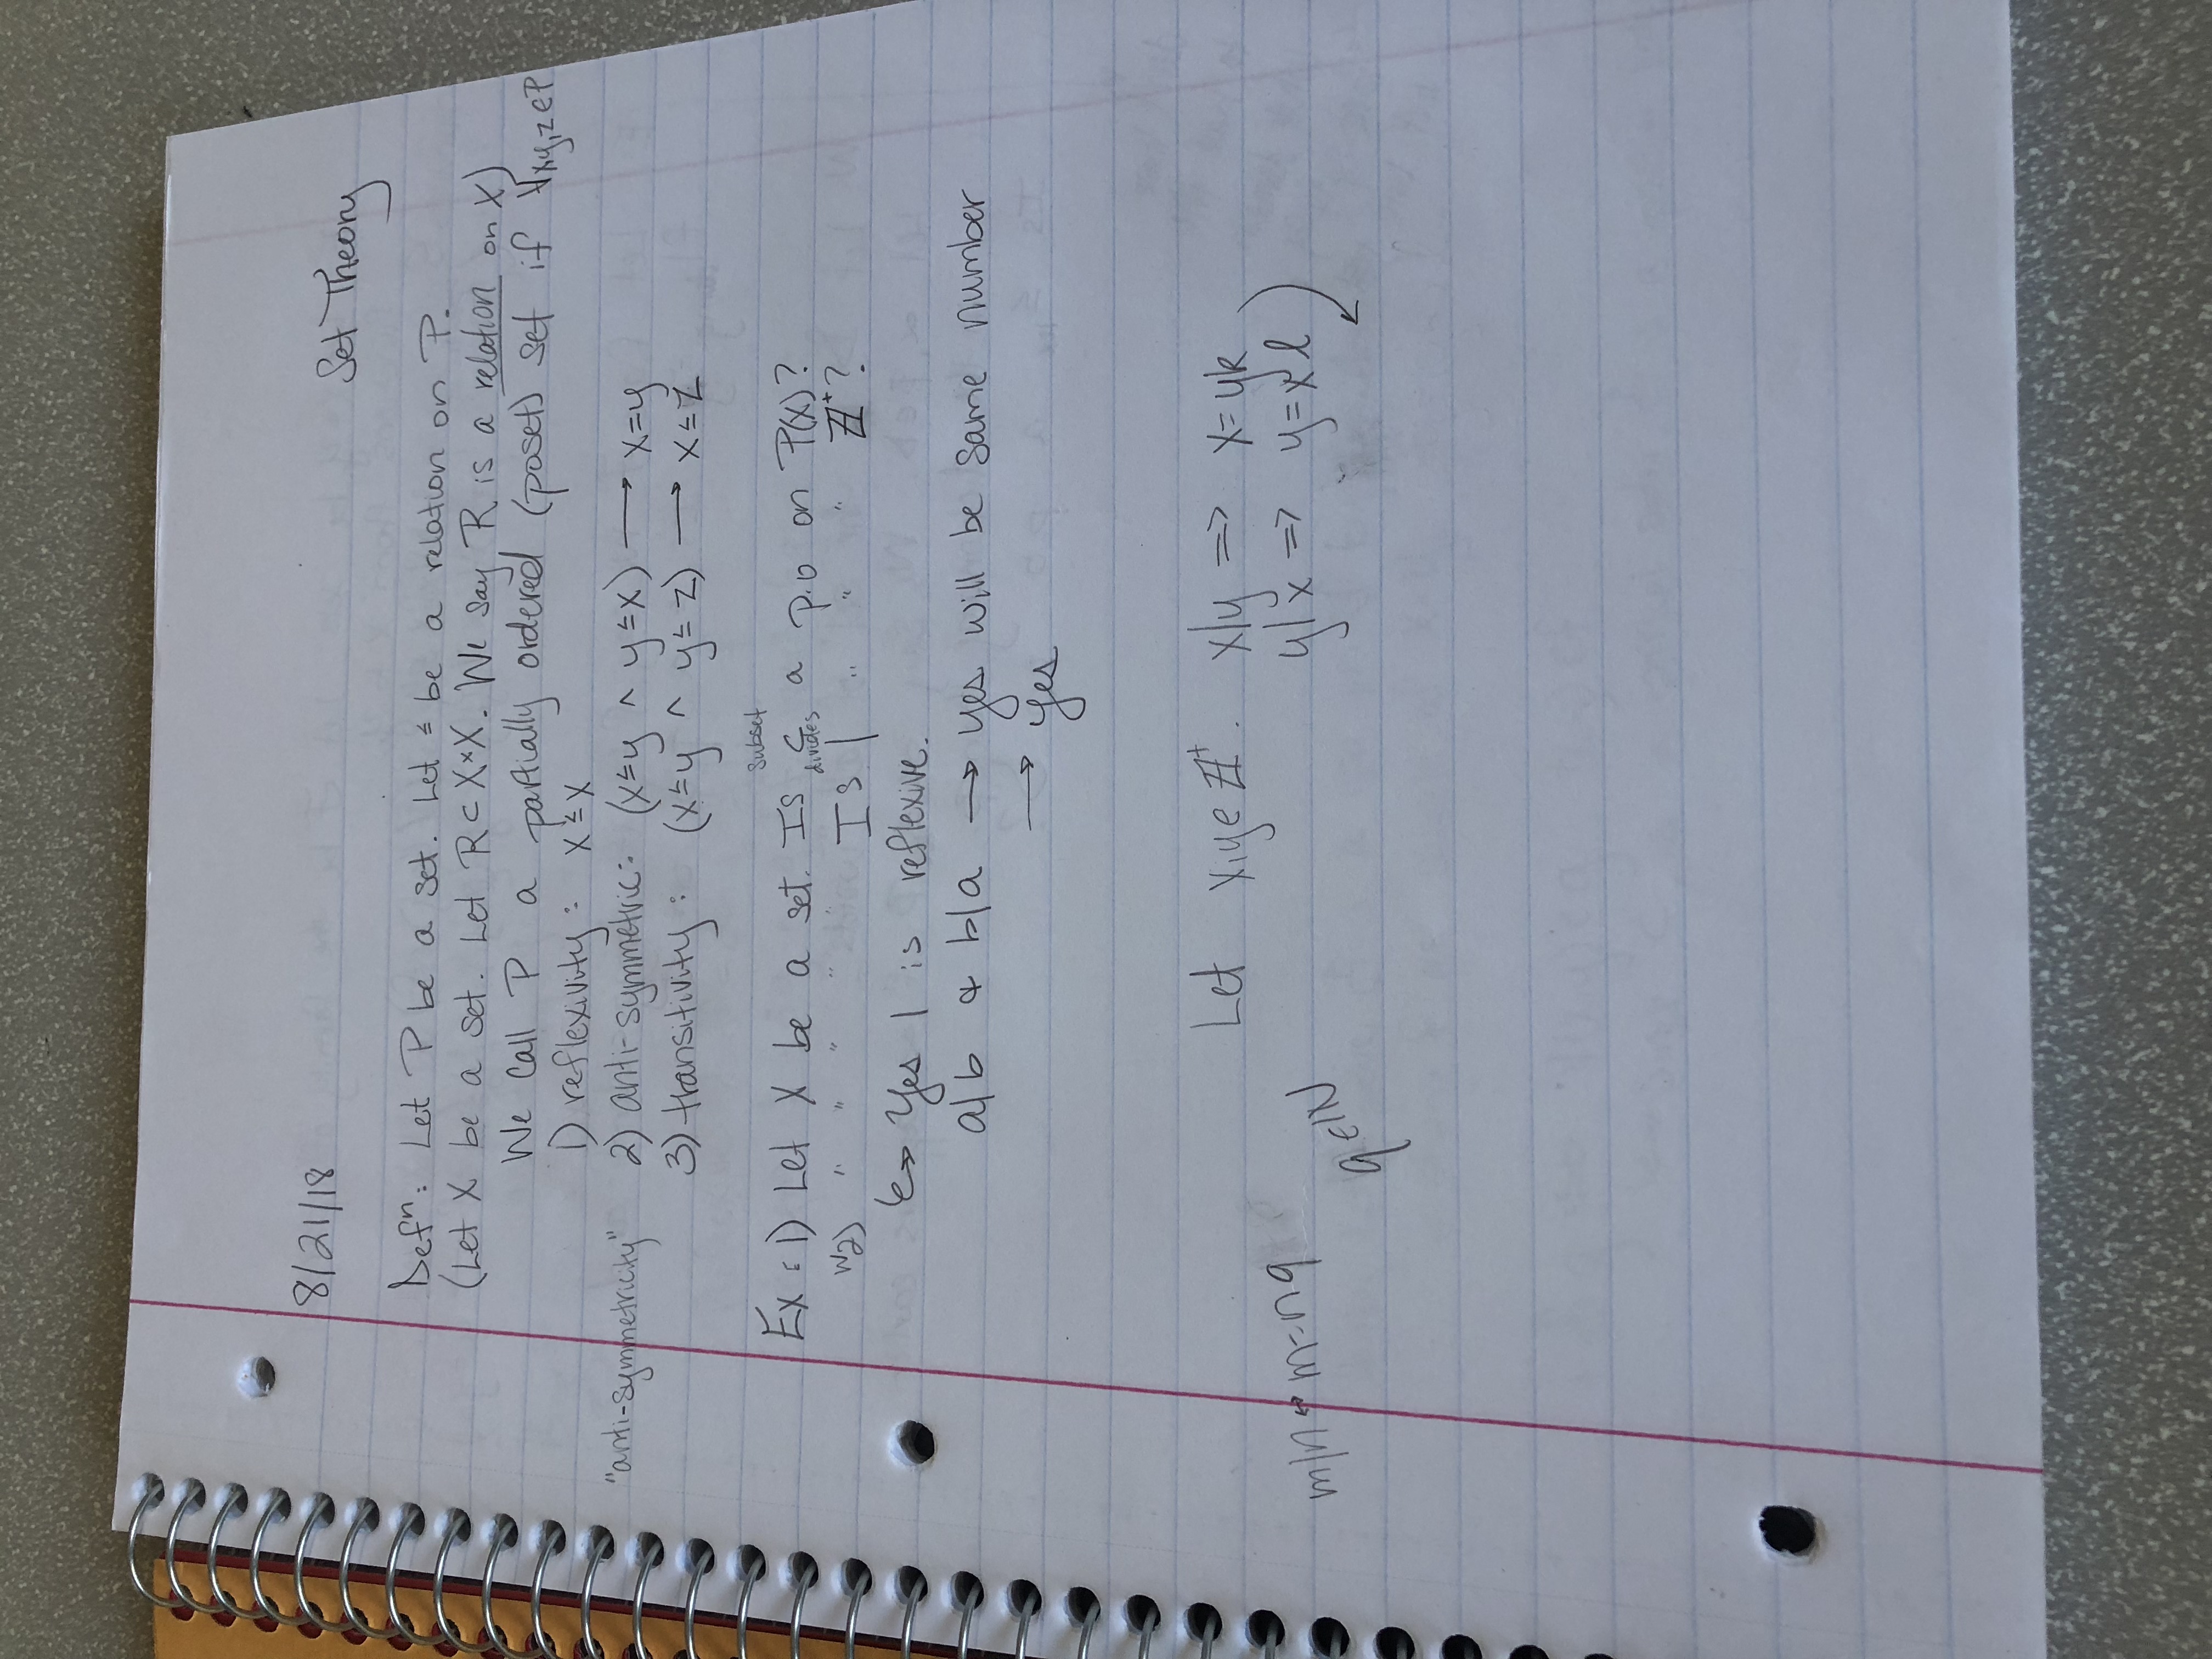 8/21/18
Set Theory
Defⁿ: Let P be a set. Let ≤ be a relation on P.
(Let X be a set. Let R ⊂ X×X. We say R is a relation on X)
We call P a partially ordered (poset) set if ∀x,y,z∈P
1) reflexivity: x≤x
"anti-symmetricity" 2) anti-symmetric: (x≤y ∧ y≤x) → x=y
3) transitivity: (x≤y ∧ y≤z) → x≤z
subset
Ex: 1) Let X be a set. Is ⊂ a p.o on P(X)?
divides
2) " " " " " Is | " " " ℤ⁺?
↳ Yes | is reflexive.
a|b & b|a → yes will be same number
→ yes
Let x,y∈ℤ⁺. x|y => x=yk
y|x => y=xl
m|n ↔ m=nq
q∈ℕ